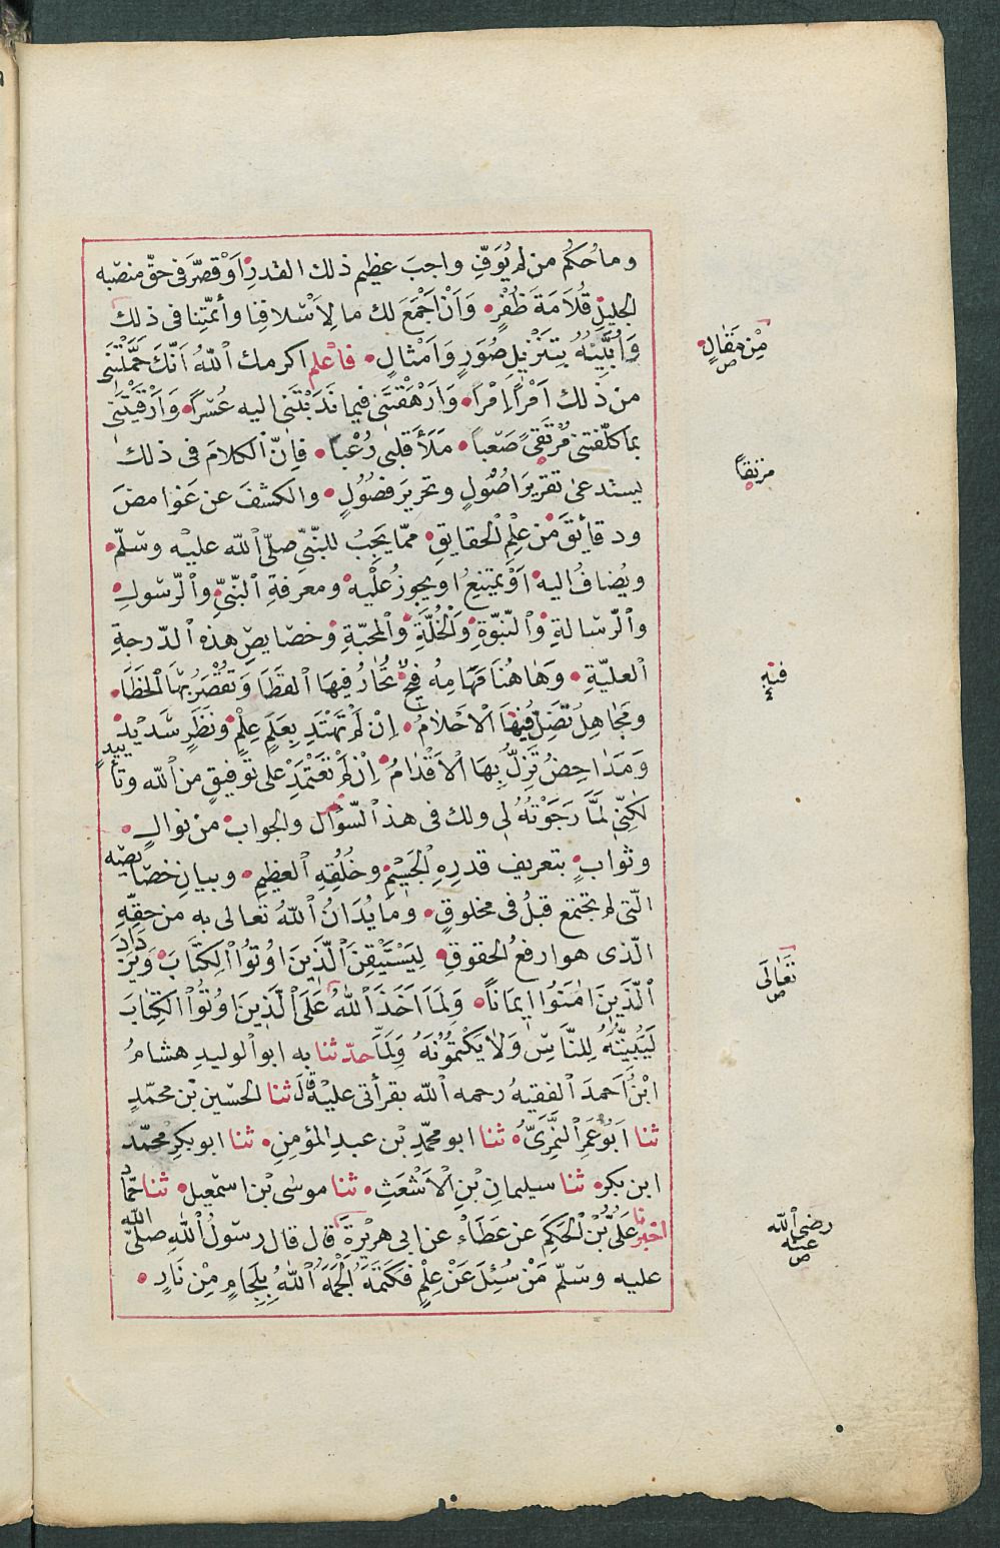 وما حُكمُ من لم يُوَفِّ واجبَ عظيم ذلك القدرِ اَوْ قصّرَ فى حقّ منصبه
الجليلِ قُلَامَةَ ظُفْرٍ وَاَنْ اَجْمَعَ لك ما لِاَسْلافِنا وأئمّتِنا فى ذلك
مِنْ مَقَالٍ ص
وَاُبَيِّنَهُ بِتَنْزِيلِ صُوَرٍ وَاَمْثالٍ فاعلم اكرمك اللهُ اَنّكَ حَمَّلْتَنى
من ذلك اَمْراً اِمْراً وَاَرْهَقْتَنى فيما نَدَبْتَنى اليه عُسْراً وَاَرْقَيْتَنى
بما كلّفتنى مُرْتَقىً صَعْباً مَلَأَ قلبى رُعْباً فاِنّ الكلامَ فى ذلك
مرتقاً
يستدعى تقريرَ اُصُولٍ وتحريرَ فصُولٍ والكشفَ عن غوامضَ
ودقائقَ مِن عِلْمِ الحقايقِ ممّا يَجِبُ للنّبىِّ صلّى الله عليه وسلّم
ويُضافُ اليه اَوْ يمتنِعُ او يجوزُ عَلَيْه ومعرفةِ النّبىِّ والرّسولِ
والرّسالةِ والنّبوّةِ والخُلَّةِ والمحبّةِ وخصايصِ هذه الدّرجةِ
العليّةِ وَهَاهُنَا مَهَامِهُ فِيحٌ تَحَارُ فِيهَا القَطَا وَتَقْصُرُ بِهَا الخُطَا
فيه
ومَجَاهِلُ تَضِلُّ فِيهَا الْاَحْلَامُ اِنْ لَمْ تَهْتَدِ بِعَلَمِ عِلْمٍ ونَظَرٍ سَدِيْدٍ
وَمَدَاحِضُ تَزِلُّ بِهَا الْاَقْدَامُ اِنْ لَمْ تَعْتَمِدْ على تَوْفيقٍ من الله وتأييدٍ
لكنّى لَمَّا رَجَوْتُهُ لى ولك فى هذ السّؤال والجواب من نوالٍ
وثوابٍ بتعريف قدرِهِ الجَسِيْمِ وخُلُقِهِ العظيمِ وبيانِ خصايصِه
الّتى لم تجتمع قبلُ فى مخلوقٍ وما يُدَانُ اللهُ تعالى به من حقِّهِ
الّذى هو ارفعُ الحقوقِ لِيَسْتَيْقِنَ الَّذِينَ اُوتُوا الكِتَابَ وَيَزْدَادَ
الَّذِينَ اٰمَنُوا اِيمَاناً وَلِمَا اَخَذَ اللهُ عَلَى الَّذِينَ اُوتُوا الكِتَابَ
تَعَالَى ص
لَيُبَيِّنُنَّهُ لِلنَّاسِ وَلَا يَكْتُمُونَهُ وَلِمَا حدّثنا به ابو الوليدِ هشامُ
ابْنُ اَحمدَ الفقيهُ رحمه الله بقرأتى عليه قالَ ثنا الحسين بْن محمّدٍ
ثنا اَبُو عُمَرَ النَّمَرِىُّ ثنا ابو محمّدِ بْن عبدِ المؤمنِ ثنا ابو بكر محمّد
ابن بكر ثنا سليمان بْنِ الْاَشْعَثِ ثنا موسى بْن اسمعيل ثنا حمّاد
اخبرنا عَلىُّ بْنُ الْحَكَمِ عن عَطَاءٍ عن ابى هريْرةَ قال قال رسولُ اللهِ صلّى الله
رضى الله
عنه ص
عليه وسلّم مَنْ سُئِلَ عَنْ عِلْمٍ فَكَتَمَهُ اَلْجَمَهُ اللهُ بِلِجَامٍ مِنْ نَارٍ